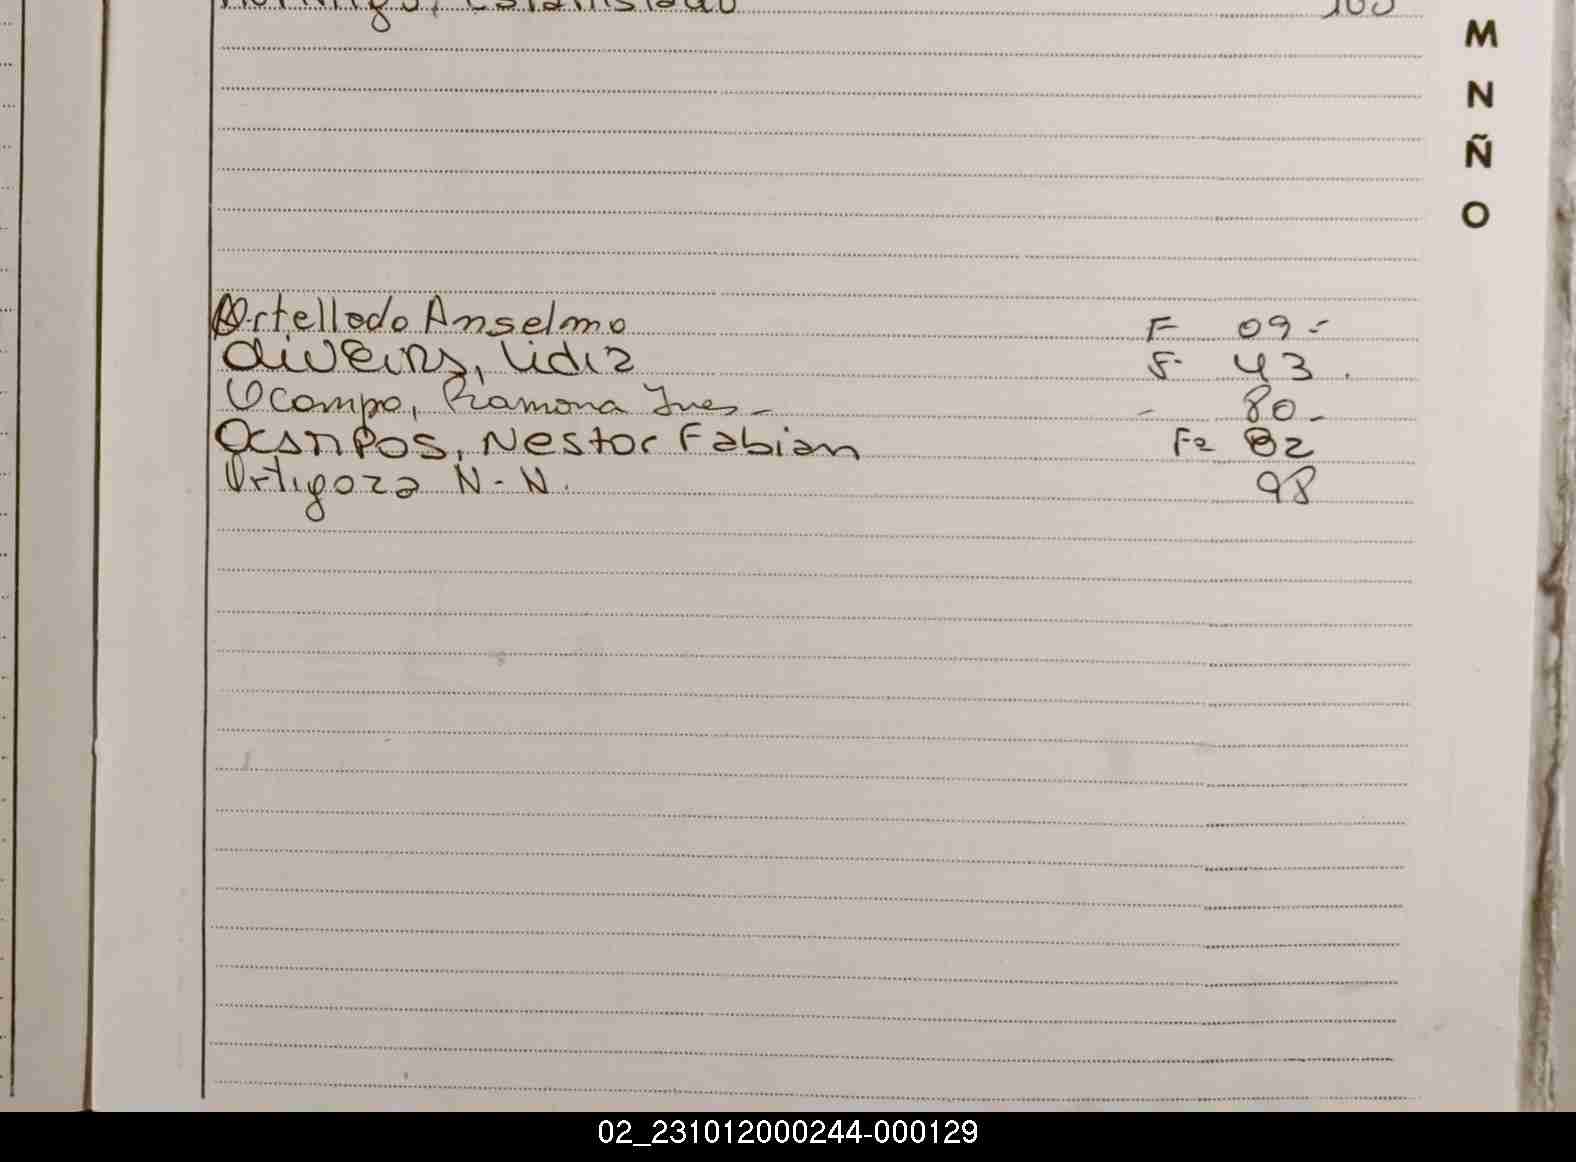 Estanislao 103
M
N
Ñ
O
Ortellado Anselmo F 09-
Oliveira, Lidia F- 43.
Ocampo, Ramona Ines- - 80-
Ocampos, Nestor Fabian Fº 82
Ortigoza N-N. 98
02_231012000244-000129